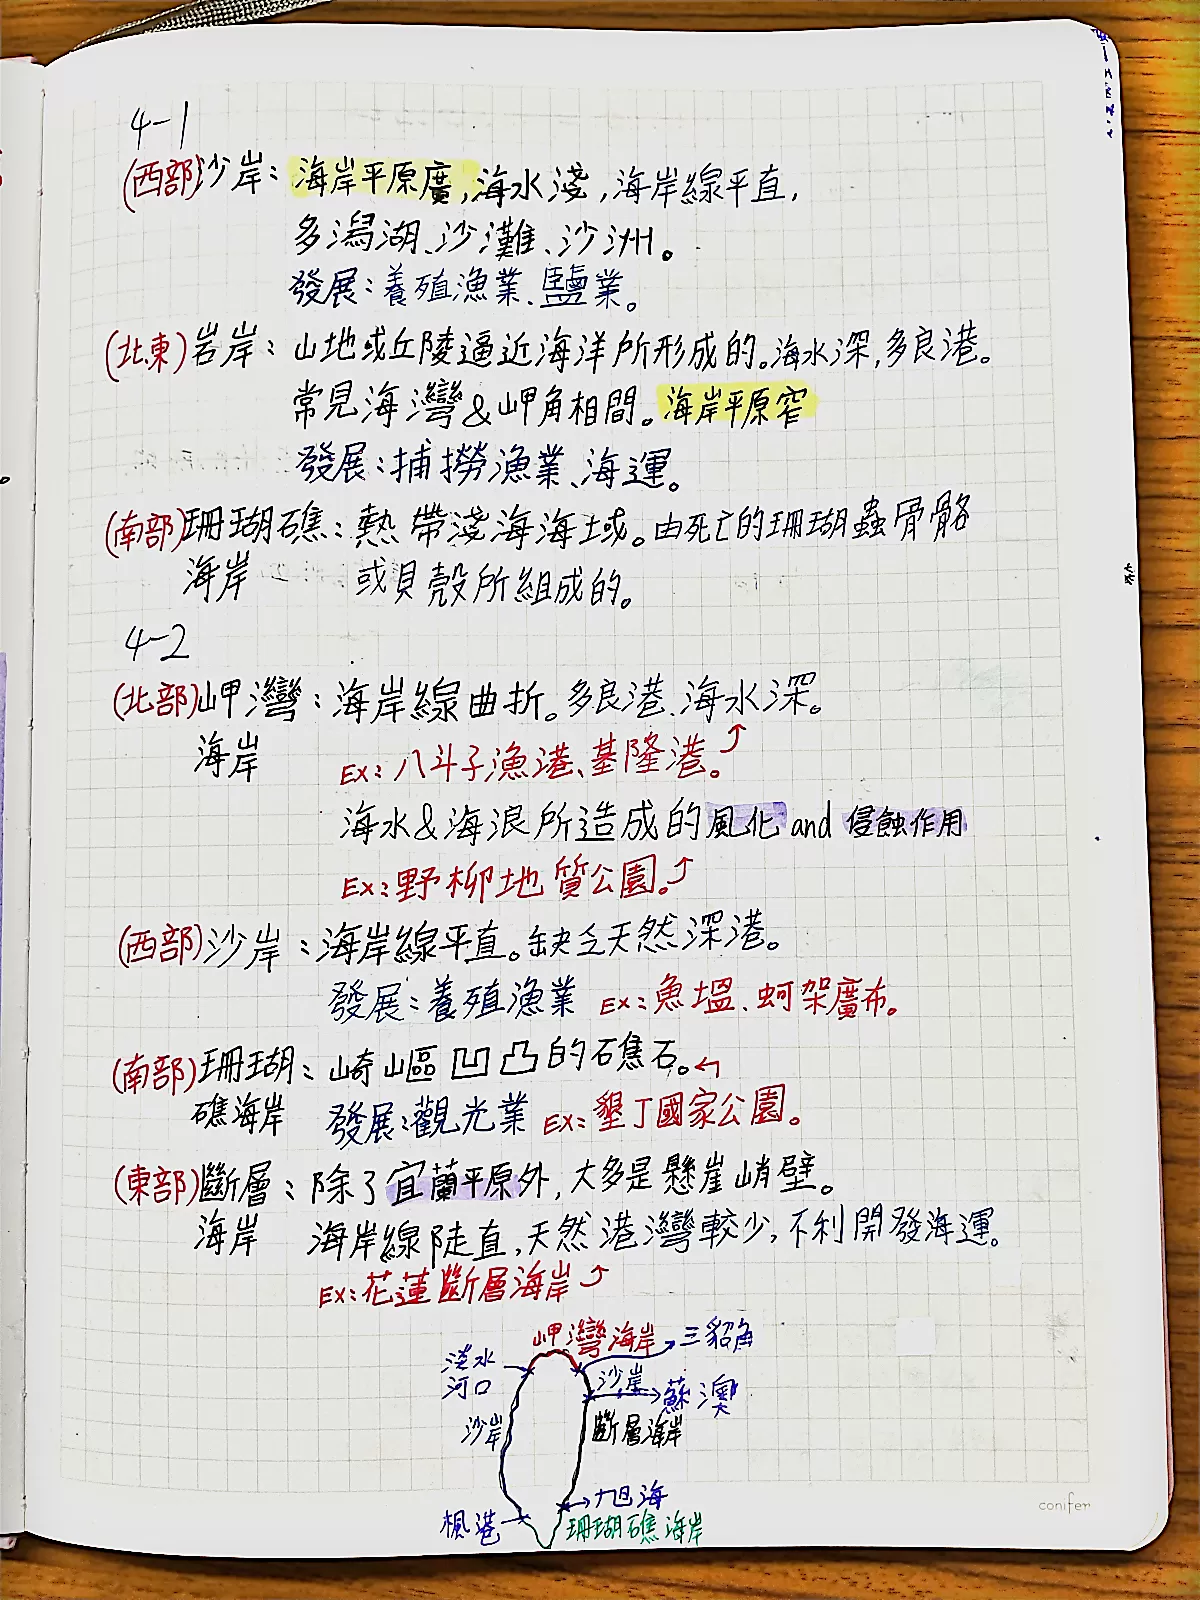 4-1
(西部)沙岸：海岸平原廣，海水淺，海岸線平直，
多潟湖、沙灘、沙洲。
發展：養殖漁業、鹽業。
(北、東)岩岸：山地或丘陵逼近海洋所形成的。海水深，多良港。
常見海灣&岬角相間。海岸平原窄
發展：捕撈漁業、海運。
(南部)珊瑚礁：熱帶淺海海域。由死亡的珊瑚蟲骨骼
海岸 或貝殼所組成的。
4-2
(北部)岬灣：海岸線曲折。多良港、海水深。
海岸 Ex：八斗子漁港、基隆港。
海水&海浪所造成的風化 and 侵蝕作用
Ex：野柳地質公園。
(西部)沙岸：海岸線平直。缺乏天然深港。
發展：養殖漁業 Ex：魚塭、蚵架廣布。
(南部)珊瑚：崎嶇凹凸的礁石。
礁海岸 發展：觀光業 Ex：墾丁國家公園。
(東部)斷層：除了宜蘭平原外，大多是懸崖峭壁。
海岸 海岸線陡直，天然港灣較少，不利開發海運。
Ex：花蓮斷層海岸
岬灣海岸 三貂角
淡水
河口
沙岸 蘇澳
沙岸 斷層海岸
旭海
楓港 珊瑚礁海岸
conifer